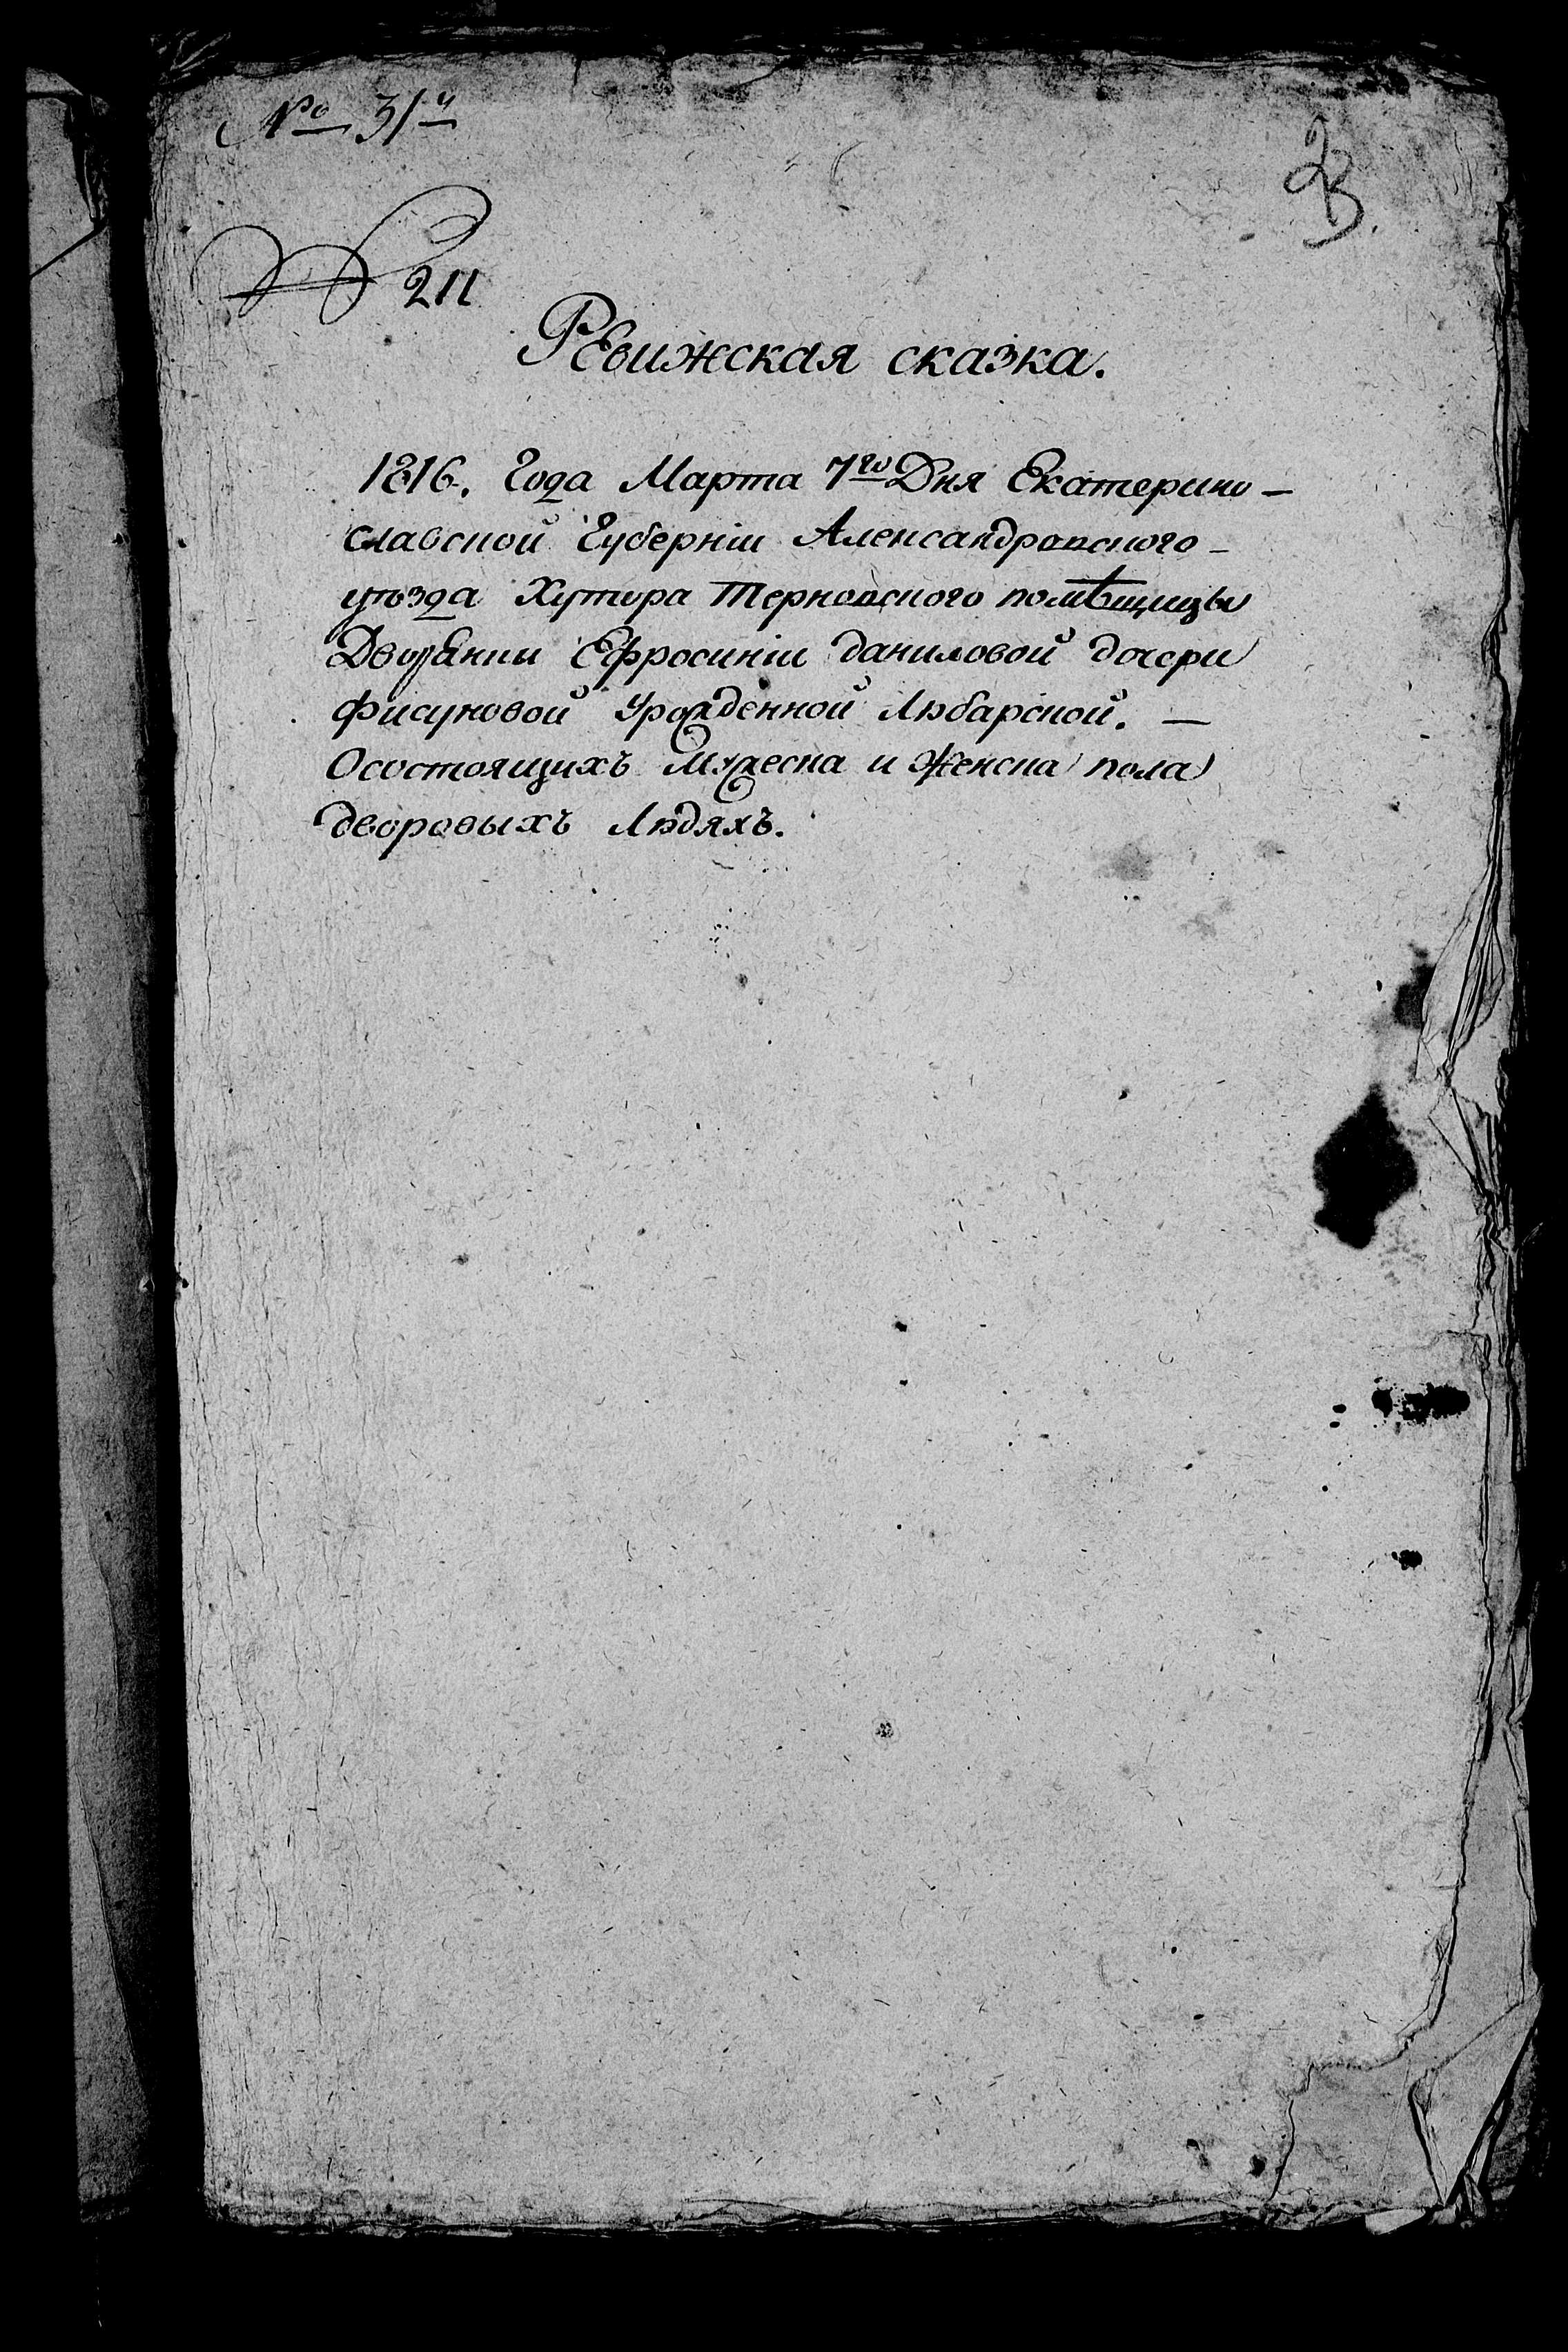 № 31й
№ 211
Ревижская сказка.
1816. Года Марта 7го Дня Екатерино-
славской Губерніи Александровского-
уѣзда Хутора Терновского помѣщицы
Дворянки Ефросиніи даниловой дочери
Фисуновой Урожденной Любарской. —
Осостоящихъ Мужеска и Женска пола
дворовыхъ Людяхъ.